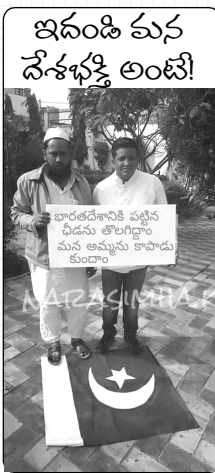 ఇదండి మన
దేశభక్తి అంటే!
భారతదేశానికి పట్టిన
ఛీడను తొలగిద్దాం
మన అమ్మను కాపాడు
కుందాం
NARASIMHA.K